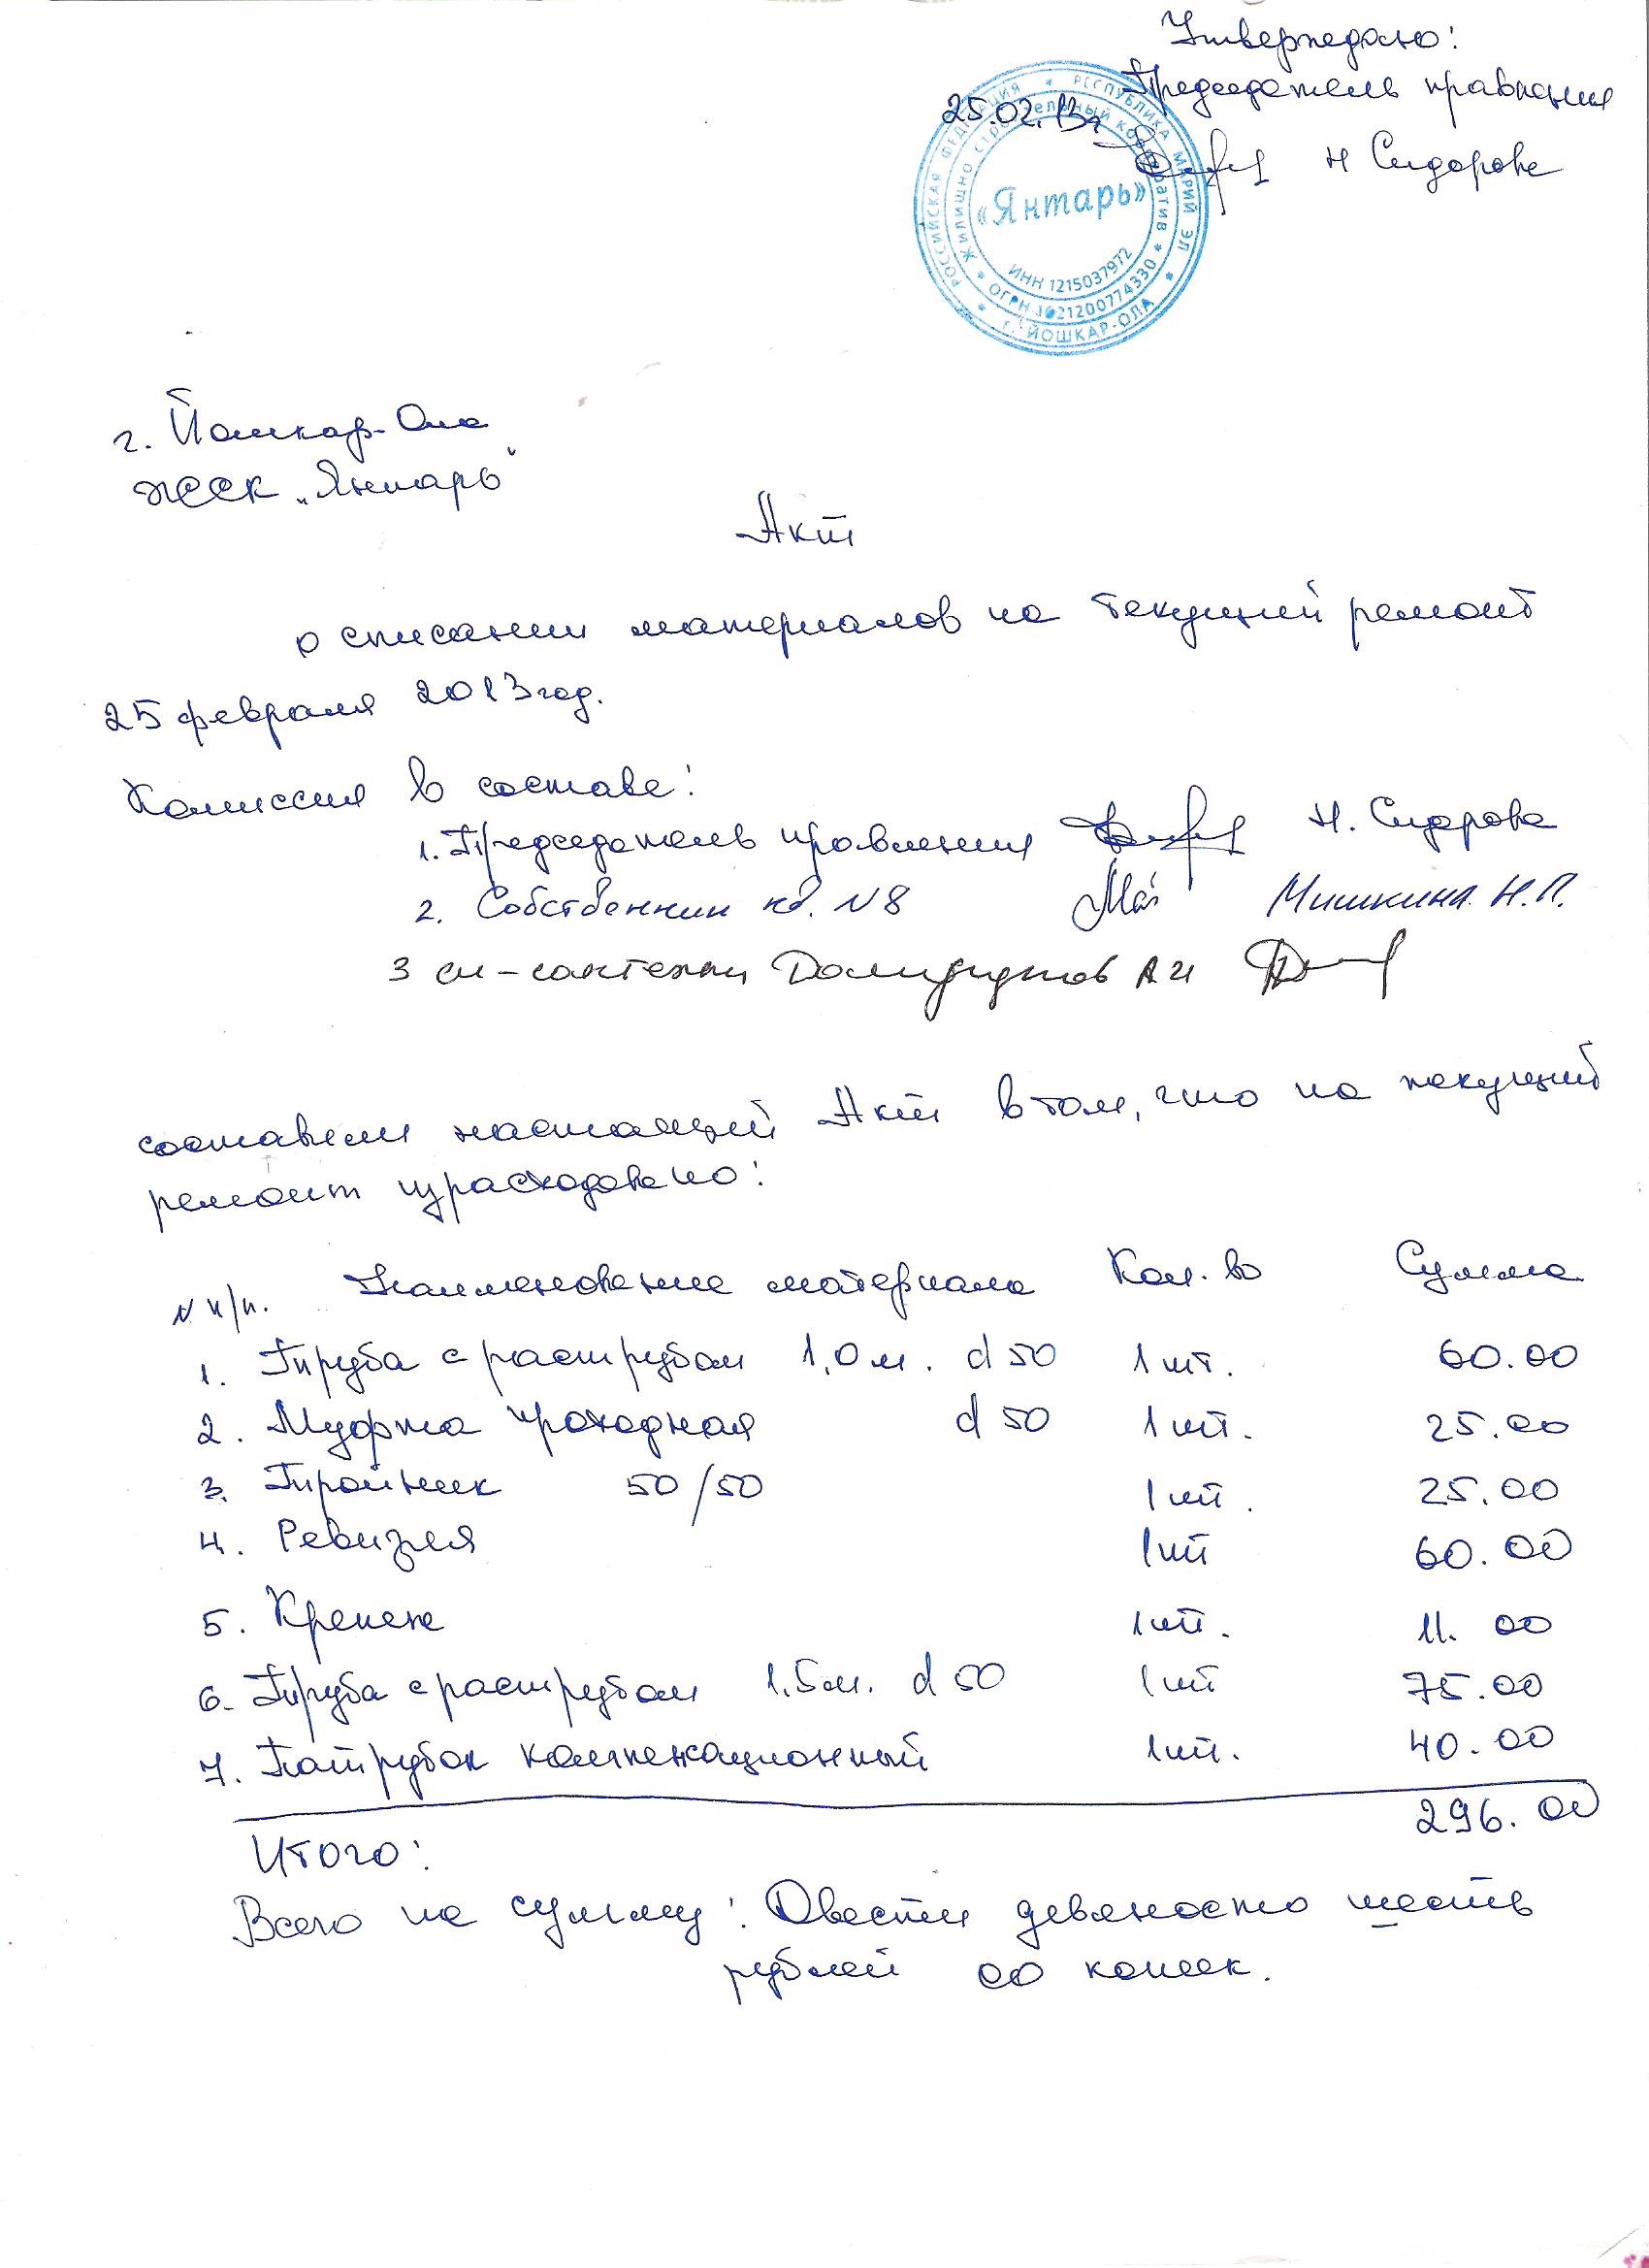 Утверждаю:
Председатель правления
25.02.13г
Н Сидорова
РОССИЙСКАЯ ФЕДЕРАЦИЯ * РЕСПУБЛИКА МАРИЙ ЭЛ * г. ЙОШКАР-ОЛА *
Жилищно строительный кооператив * ОГРН 1021200774330 *
«Янтарь»
ИНН 1215037972
г. Йошкар-Ола
ЖСК „Янтарь"
Акт
о списании материалов на текущий ремонт
25 февраля 2013 год.
Комиссия в составе:
1. Председатель правления Н. Сидорова
2. Собственник кв. №8 Мишкина Н.П.
3 сл-сантехник А И
составили настоящий Акт в том, что на текущий
ремонт израсходовано:
N п/п. Наименование материала Кол. во Сумма
1. Труба с раструбом 1,0 м. d 50 1 шт. 60.00
2. Муфта проходная d 50 1 шт. 25.00
3. Тройник 50/50 1 шт. 25.00
4. Ревизия 1 шт 60.00
5. Крепеж 1 шт. 11.00
6. Труба с раструбом 1.5 м. d 50 1 шт 75.00
7. Патрубок компенсационный 1 шт. 40.00
296.00
Итого:
Всего на сумму: Двести девяносто шесть
рублей 00 копеек.